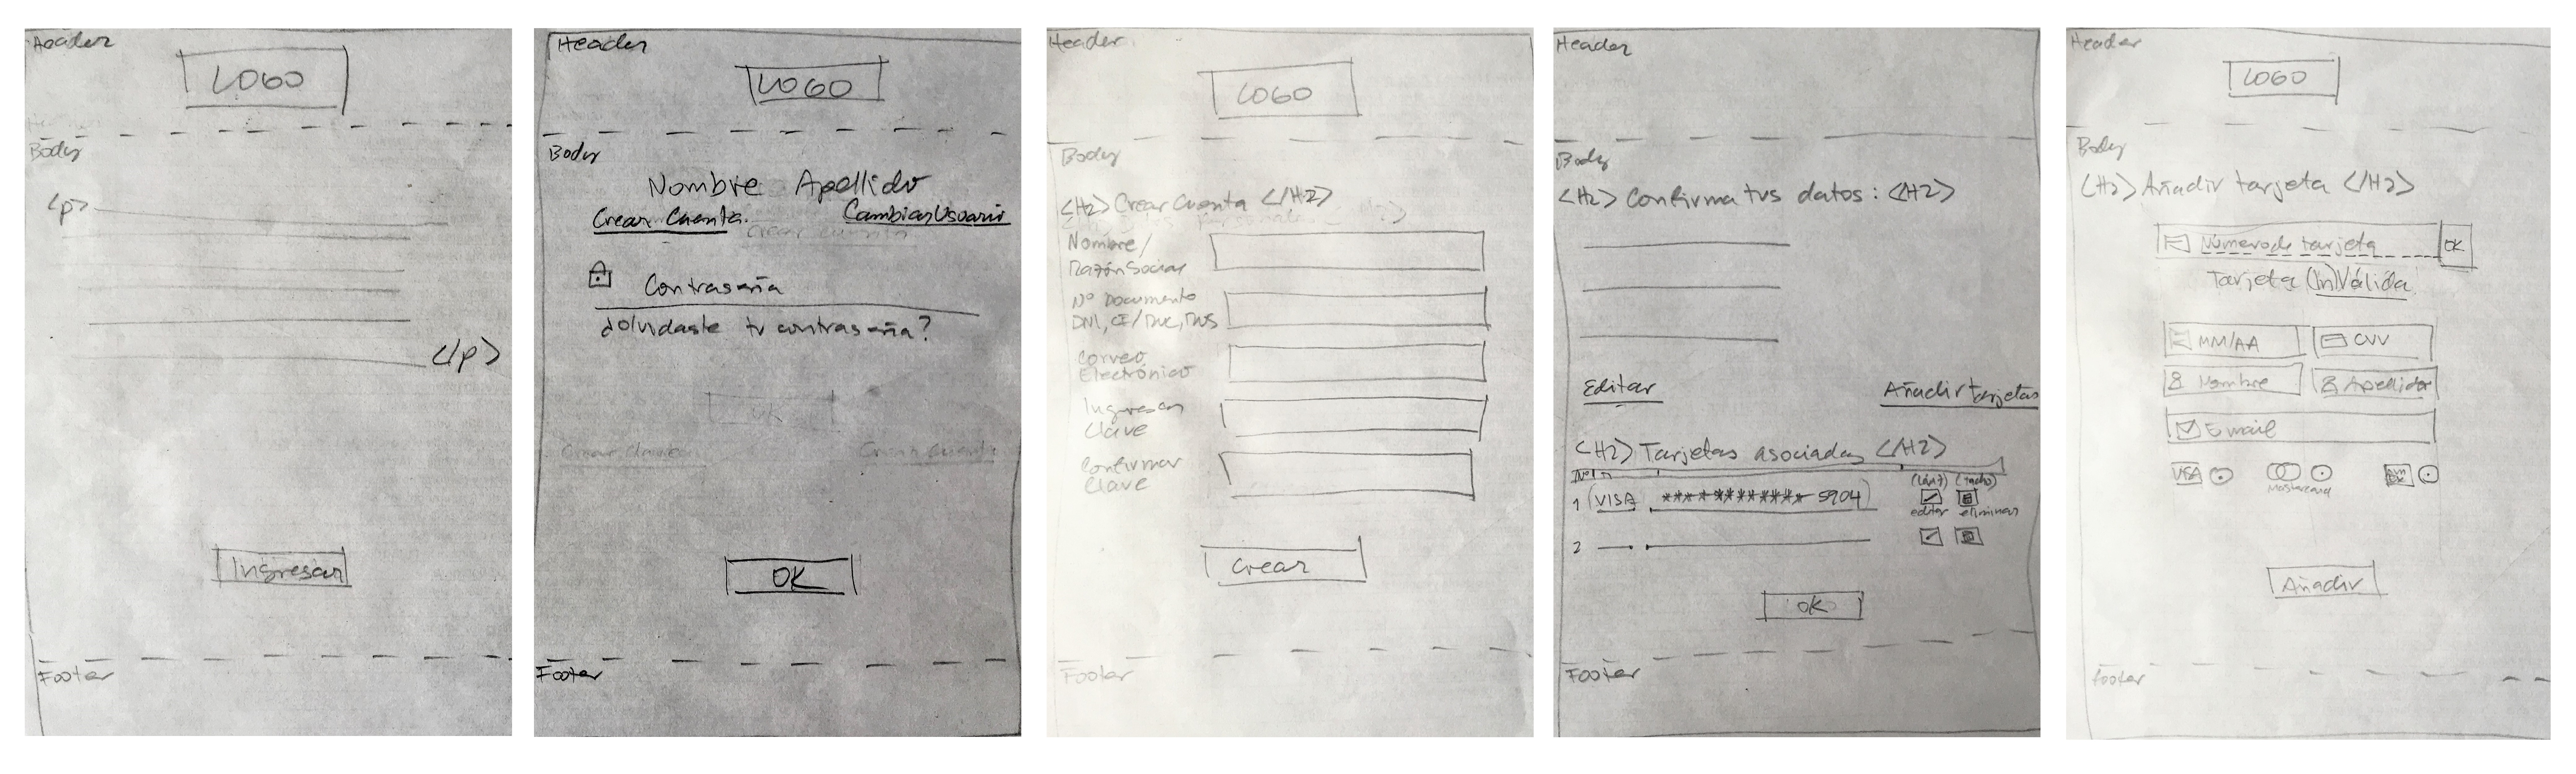 Header
LOGO
Body
<p>
</p>
Ingresar
Footer
Header
LOGO
Body
Nombre Apellido
Crear Cuenta.
Cambiar Usuario
Contraseña
¿Olvidaste tu contraseña?
OK
Crear Cuenta
Footer
Header
LOGO
Body
<H2> Crear Cuenta </H2>
Nombre/
Razón Social
Nº Documento
DNI, CE/RUC, RUS
Correo
Electrónico
Ingresar
Clave
Confirmar
Clave
Crear
Footer
Header
Body
<H2> Confirma tus datos: <H2>
Editar
Añadir tarjetas
<H2> Tarjetas asociadas </H2>
Nº
(lápiz) (tacho)
1 (VISA ************ 5904)
editar eliminar
2
OK
Footer
Header
LOGO
Body
<H2> Añadir tarjeta </H2>
Número de tarjeta OK
Tarjeta (In)Válida
MM/AA CVV
Nombre Apellido
Email
VISA
Mastercard
Añadir
footer